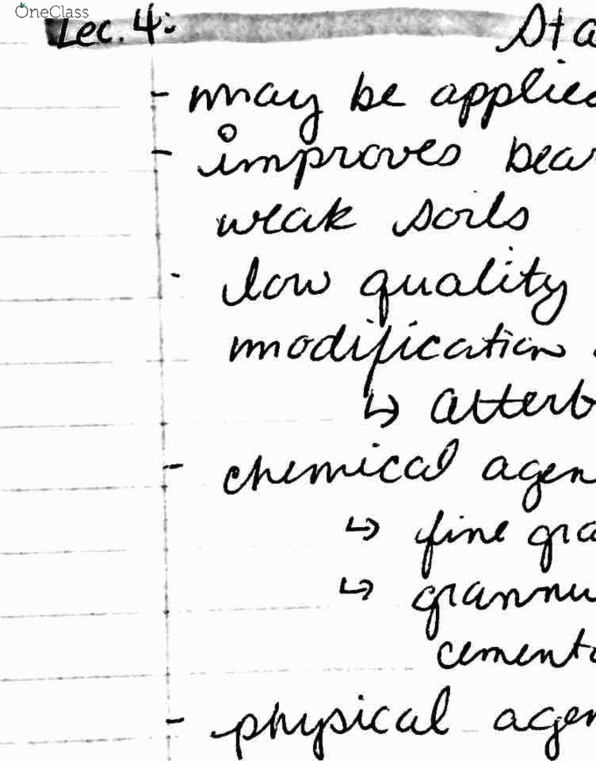 OneClass
Lec. 4: Sta
- may be applied
- improves bear
weak soils
- low quality
modification
↳ atterb
- chemical agen
↳ fine gra
↳ grannu
cementa
- physical agen